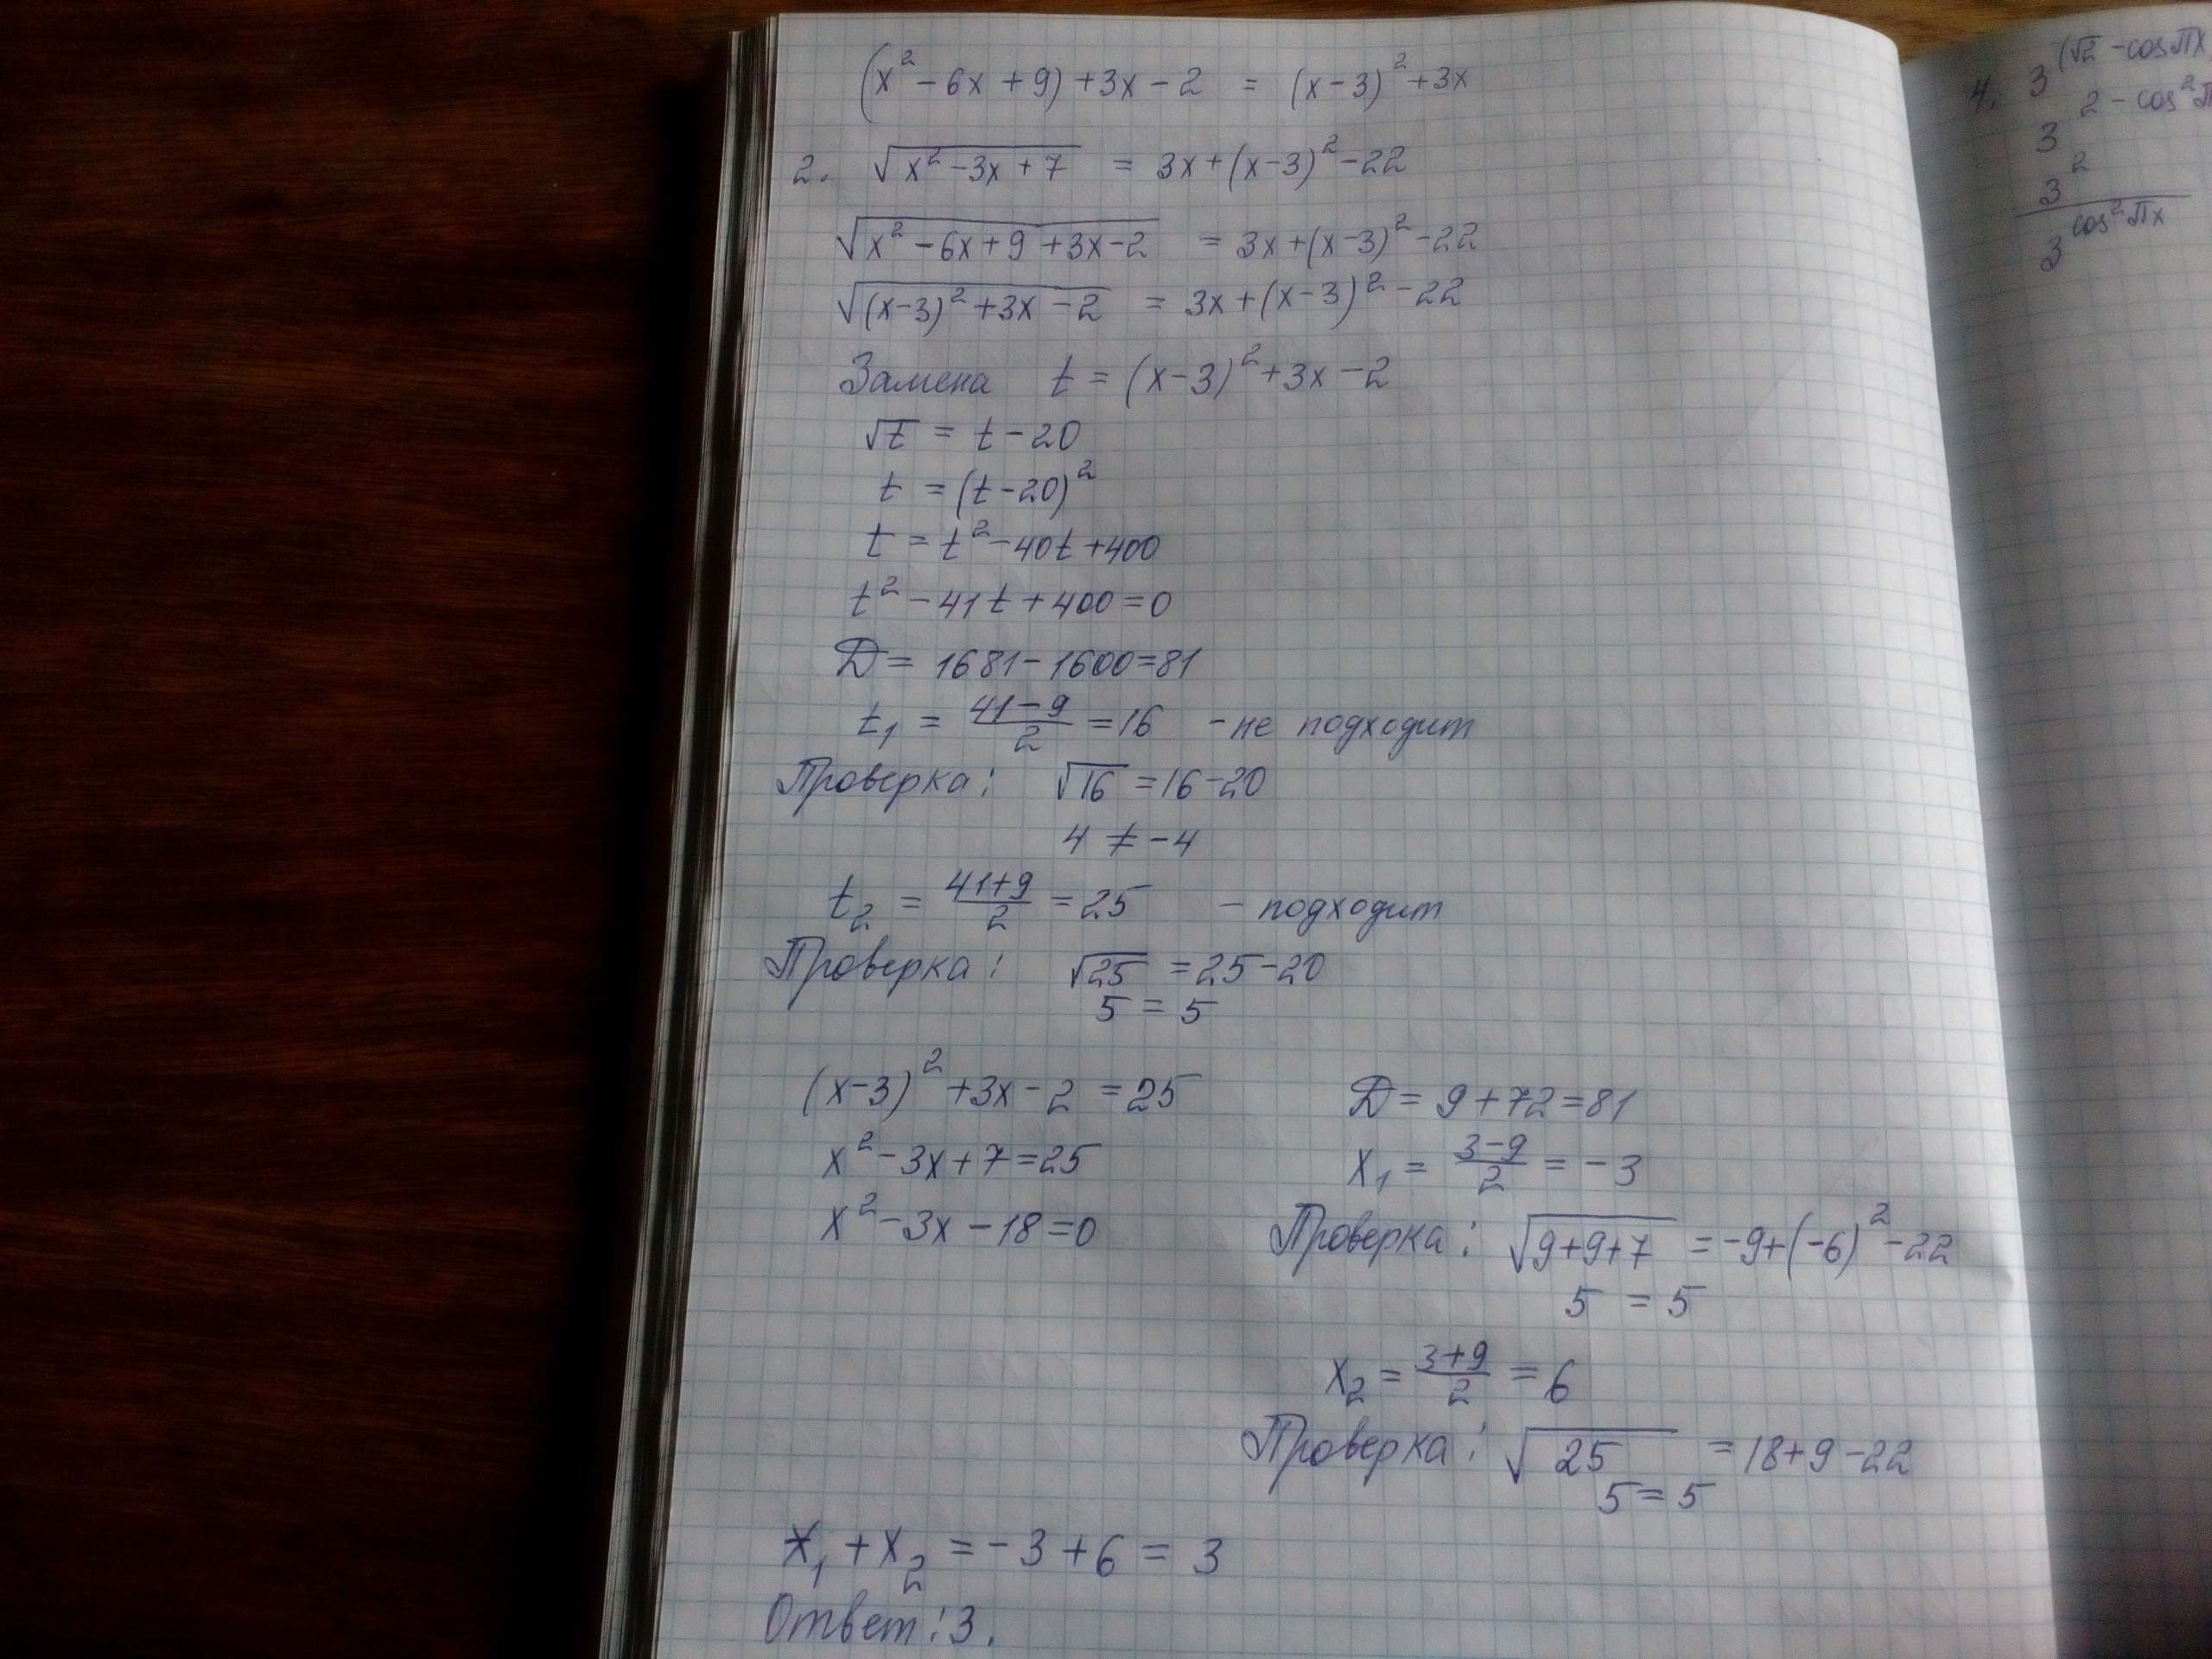 (x² - 6x + 9) + 3x - 2 = (x-3)² + 3x
2. √(x² - 3x + 7) = 3x + (x-3)² - 22
√(x² - 6x + 9 + 3x - 2) = 3x + (x-3)² - 22
√((x-3)² + 3x - 2) = 3x + (x-3)² - 22
Замена t = (x-3)² + 3x - 2
√t = t - 20
t = (t - 20)²
t = t² - 40t + 400
t² - 41t + 400 = 0
D = 1681 - 1600 = 81
t₁ = (41-9)/2 = 16 - не подходит
Проверка: √16 = 16 - 20
4 ≠ -4
t₂ = (41+9)/2 = 25 - подходит
Проверка: √25 = 25 - 20
5 = 5
(x-3)² + 3x - 2 = 25
x² - 3x + 7 = 25
x² - 3x - 18 = 0
D = 9 + 72 = 81
x₁ = (3-9)/2 = -3
Проверка: √(9+9+7) = -9 + (-6)² - 22
5 = 5
x₂ = (3+9)/2 = 6
Проверка: √25 = 18 + 9 - 22
5 = 5
x₁ + x₂ = -3 + 6 = 3
Ответ: 3.
4. 3^(√2 - cosπx
3^2 - cos²π
3²
3^cos²πx